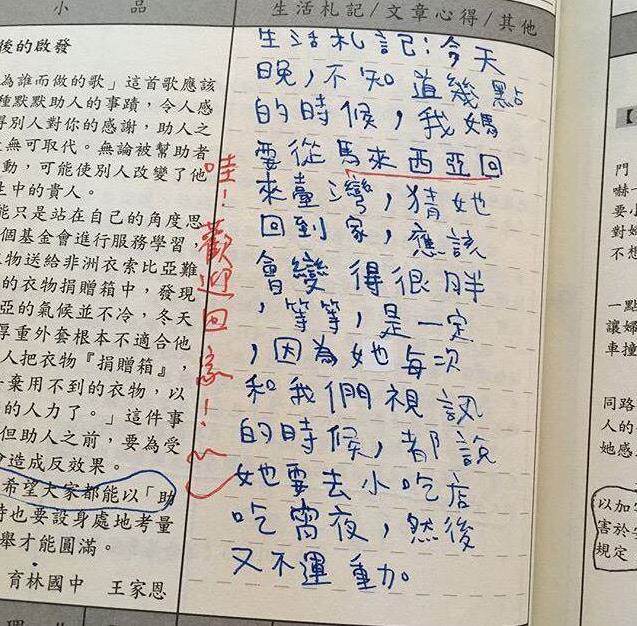 小 品
後的啟發
為誰而做的歌」這首歌應該
種默默助人的事蹟,令人感
得別人對你的感謝,助人之
上無可取代。無論被幫助者
動,可能使別人改變了他
生中的貴人。
能只是站在自己的角度思
個基金會進行服務學習,
物送給非洲衣索比亞難
的衣物捐贈箱中,發現
亞的氣候並不冷,冬天
厚重外套根本不適合他
人把衣物『捐贈箱』,
棄用不到的衣物,以
的人力了。」這件事
但助人之前,要為受
會造成反效果。
希望大家都能以「助
時也要設身處地考量
舉才能圓滿。
育林國中 王家恩
生活札記/文章心得/其他
生活札記:今天
晚,不知道幾點
的時候,我媽
要從馬來西亞回
來臺灣,猜她
回到家,應該
會變得很胖
,等等,是一定
,因為她每次
和我們視訊
的時候,都說
她要去小吃店
吃宵夜,然後
又不運動。
哇!歡迎回家!
門
嚇
要小
對婦
不想
一點
讓婦
車撞
同路
人的
她感
以加
害於
規定